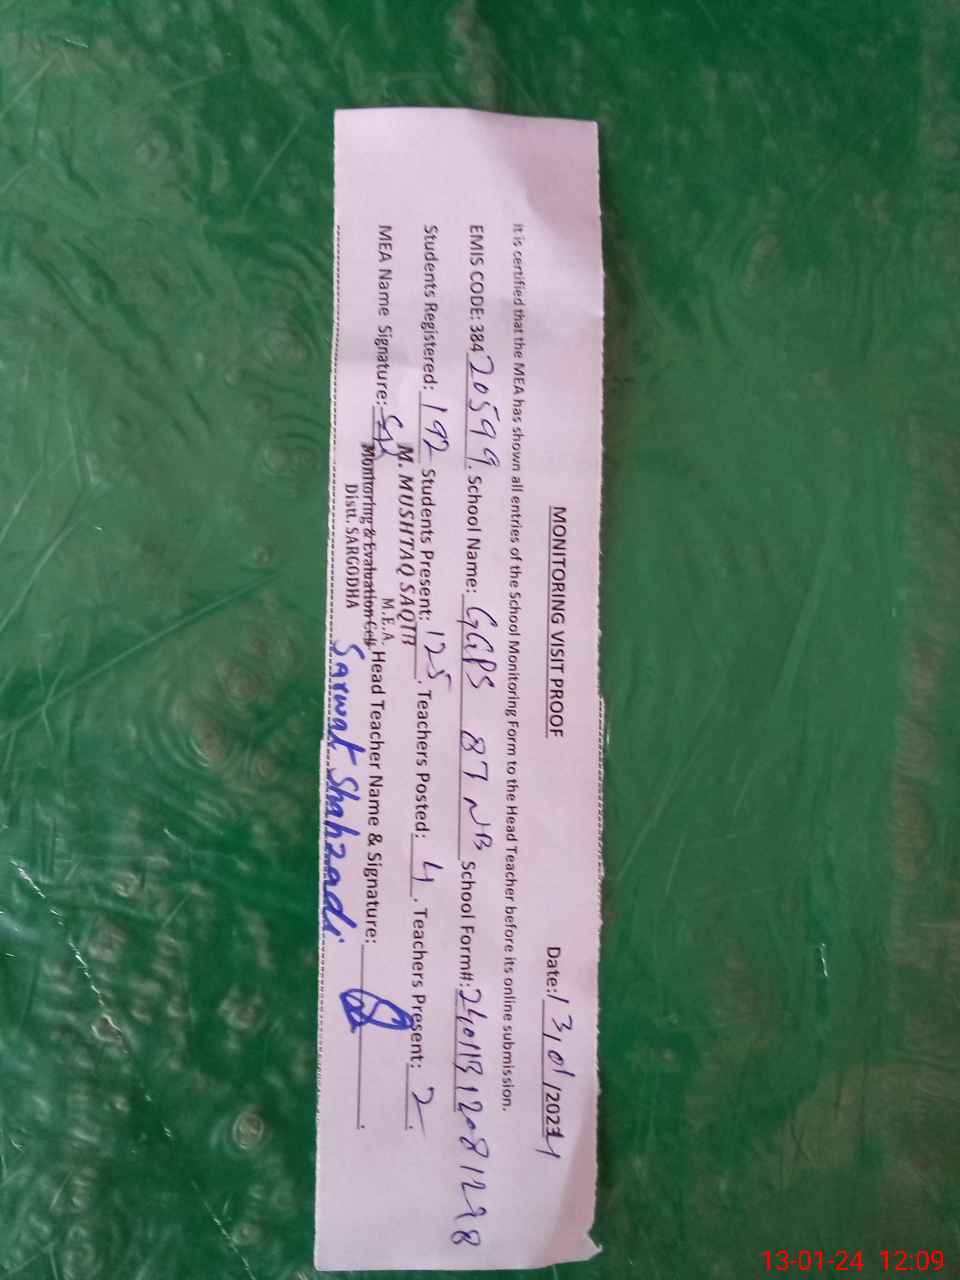 MONITORING VISIT PROOF
Date: 13/01/2024
It is certified that the MEA has shown all entries of the School Monitoring Form to the Head Teacher before its online submission.
EMIS CODE: 38420599. School Name: GGPS 87 NB School Form#:
Students Registered: 192 Students Present: 125. Teachers Posted: 4. Teachers Present: 2.
MEA Name Signature: Head Teacher Name & Signature:
M. MUSHTAQ SAQIB
M.E.A.
Monitoring & Evaluation Cell
Distt. SARGODHA
Sarwat Shahzadi
13-01-24 12:09